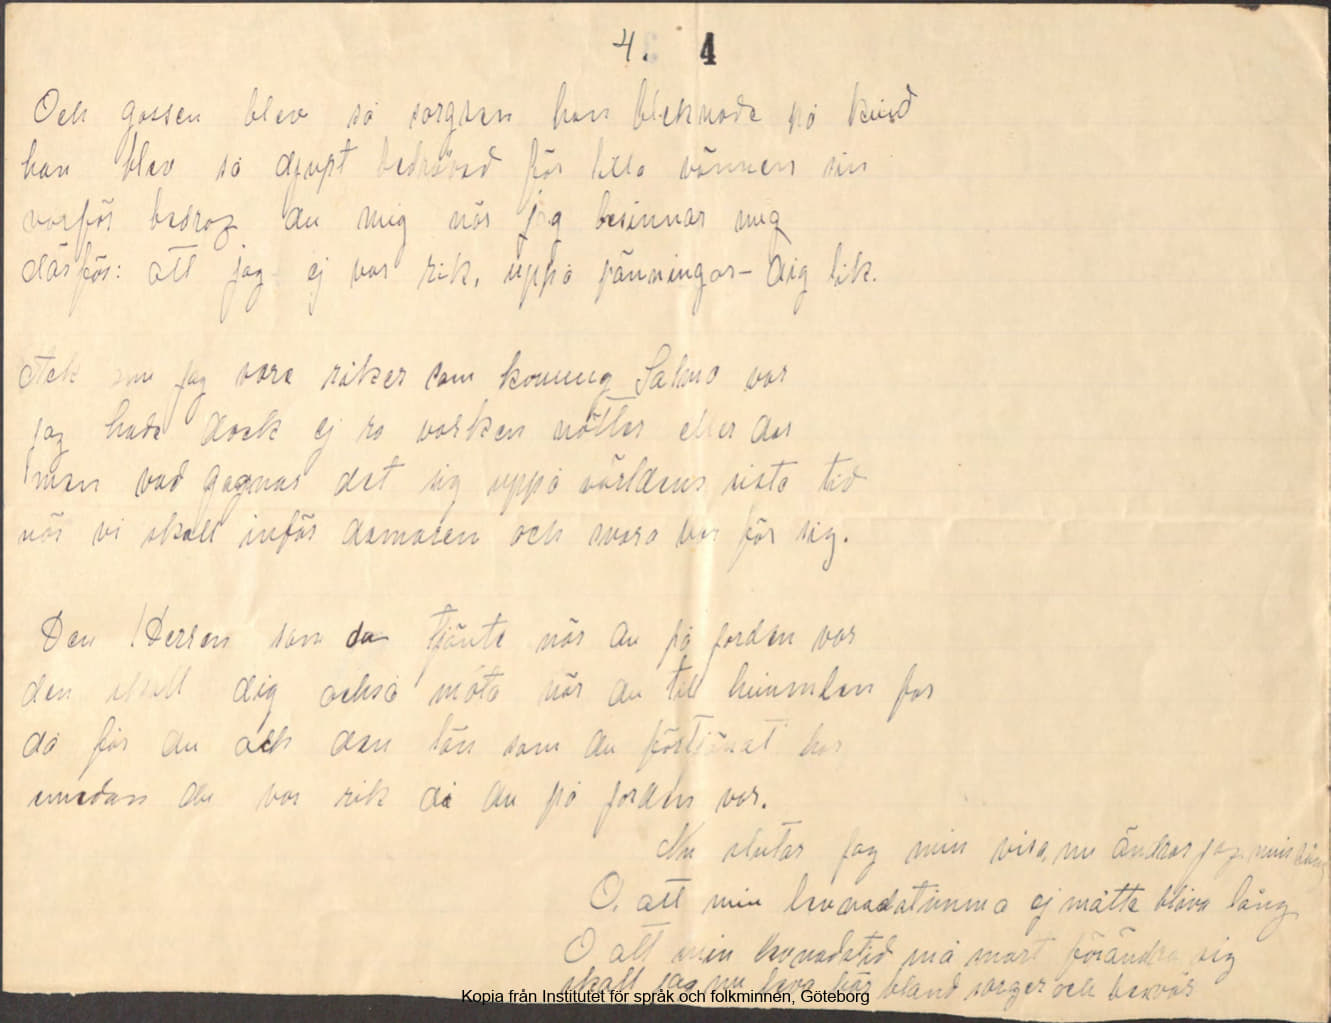 4. 4
Och gossen blev så sorgsen han bleknade på kind
han blev så djupt bedrövad för lilla vännen sin
varför bedrog du mig när jag besinnar mig
därför: att jag ej var rik, uppå pänningar dig lik.
Ack om jag vore riker som konung Salmo var
jag hade dock ej ro varken nätter eller dar
men vad gagnar det sig uppå världens sista tid
när vi skall inför domaren och svara var för sig.
Den Herren som du tjänte när du på jorden var
den skall dig också möta när du till himmelen far
då får du ock den lön som du förtjänat har
emedan du var rik då du på jorden var.
Nu slutar jag min visa, nu ändrar jag min sång
O, att min levnadstimma ej måtte bliva lång
O att min levnadstid må snart förändra sig
skall jag nu leva här bland sorger och besvär
Kopia från Institutet för språk och folkminnen, Göteborg